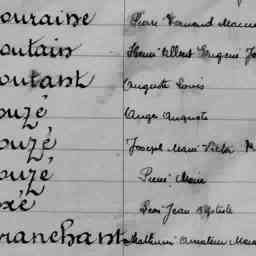 ouraine Pierre Fernand Marie
outain Henri Albert Eugène Jo
outant Auguste Louis
ouzé Ange Auguste
ouzé Joseph Marie Victor M
ouzé Pierre Marie
oxé Jean Baptiste
ranchant Mathurin Amateur Marie